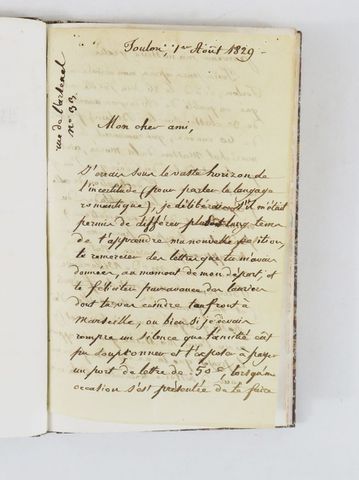 Toulon, 1er Août 1829 -
rue de l'arsenal
n° 33
Mon cher ami,
J'errais sous le vaste horizon de
l'incertitude (pour parler le langage
romantique), je délibérais s'il m'était
permis de différer plus long tems
de t'apprendre ma nouvelle position,
te remercier des lettres que tu m'avais
données, au moment de mon départ, et
te féliciter par avance des lauriers
dont tu vas ceindre ton front à
Marseille, ou bien si je devais
rompre un silence que l'amitié eût
pu soupçonner et t'exposer à payer
un port de lettre de 50c, lorsqu'une
occasion s'est présentée de te faire